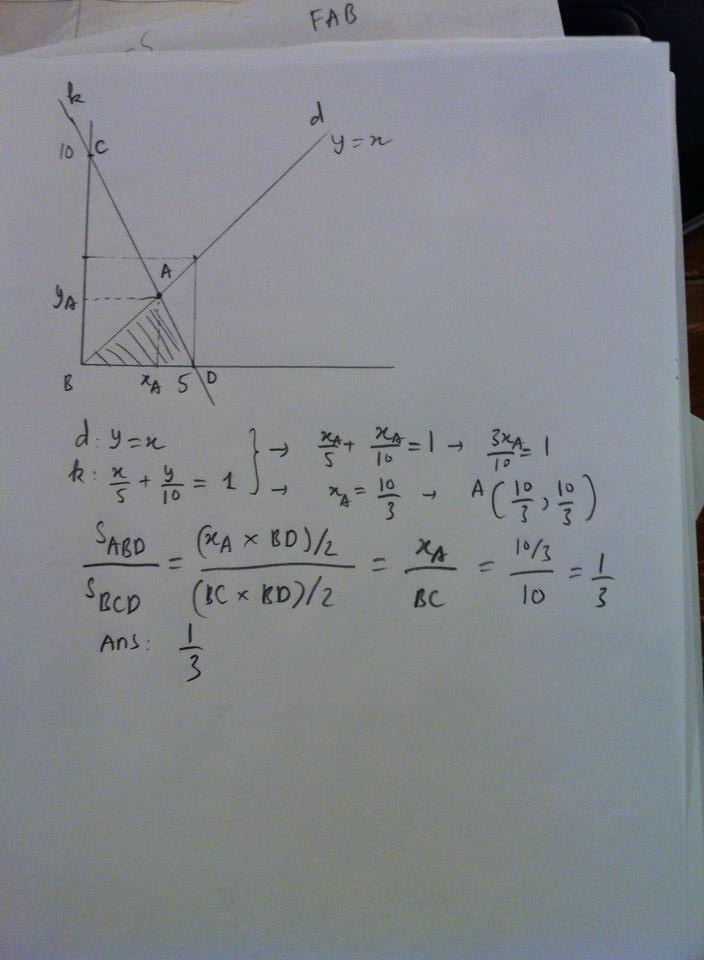 FAB
k
d
y = x
10 C
A
yA
B xA 5 D
d: y = x } → xA/5 + xA/10 = 1 → 3xA/10 = 1
k: x/5 + y/10 = 1 } → xA = 10/3 → A(10/3, 10/3)
SABD/SBCD = (xA × BD)/2 / (BC × BD)/2 = xA/BC = 10/3/10 = 1/3
Ans: 1/3